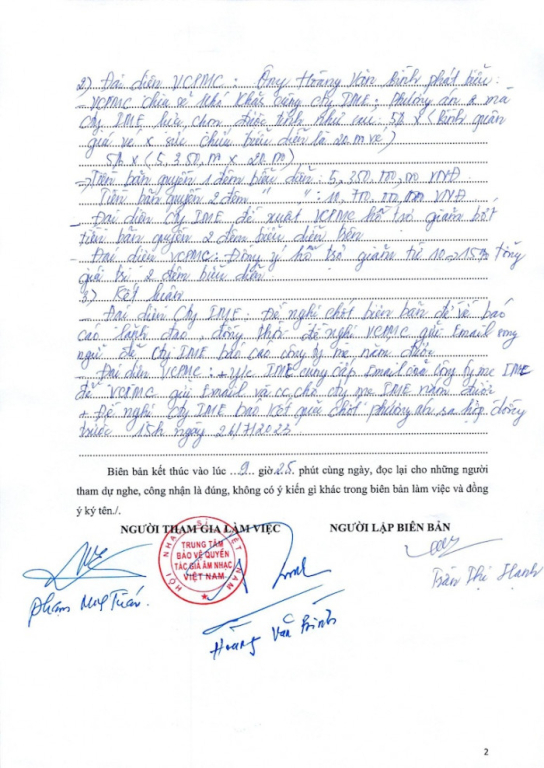 2) Đại diện VCPMC: Ông Hoàng Văn Bình phát biểu:
- VCPMC chia sẻ khó khăn cùng cty IME; Phương án 2 mà
cty IME lựa chọn được tính như sau: 5% x (Bình quân
giá vé x sức chứa biểu diễn là 20m vé)
5% x (5,350,m x 20m)
→ Tiền bản quyền 1 đêm biểu diễn: 5,350,000,000 VNĐ
Tiền bản quyền 2 đêm " " : 10,700,000,000 VNĐ
- Đại diện Cty IME đề xuất VCPMC hỗ trợ giảm bớt
tiền bản quyền 2 đêm biểu diễn trên
- Đại diện VCPMC: Đồng ý hỗ trợ giảm từ 10→15% tổng
giá trị 2 đêm biểu diễn
3) Kết luận
- Đại diện Cty IME: Đề nghị chốt biên bản để về báo
cáo lãnh đạo, đồng thời đề nghị VCPMC gửi Email
ngữ để Cty IME báo cáo công ty mẹ nắm được
- Đại diện VCPMC: + y/c IME cung cấp Email của Công ty mẹ IME
để VCPMC gửi Email và cc cho cty mẹ IME nắm được
+ Đề nghị Cty IME báo kết quả chốt phương án, sa hợp đồng
trước 15h ngày 26/7/2023
Biên bản kết thúc vào lúc ..9.. giờ.25.. phút cùng ngày, đọc lại cho những người
tham dự nghe, công nhận là đúng, không có ý kiến gì khác trong biên bản làm việc và đồng
ý ký tên./.
NGƯỜI THAM GIA LÀM VIỆC NGƯỜI LẬP BIÊN BẢN
HỘI NHẠC SĨ VIỆT NAM
TRUNG TÂM
BẢO VỆ QUYỀN
TÁC GIẢ ÂM NHẠC
VIỆT NAM
Trần Thị Hạnh
Phạm Tuấn
Hoàng Văn Bình
2